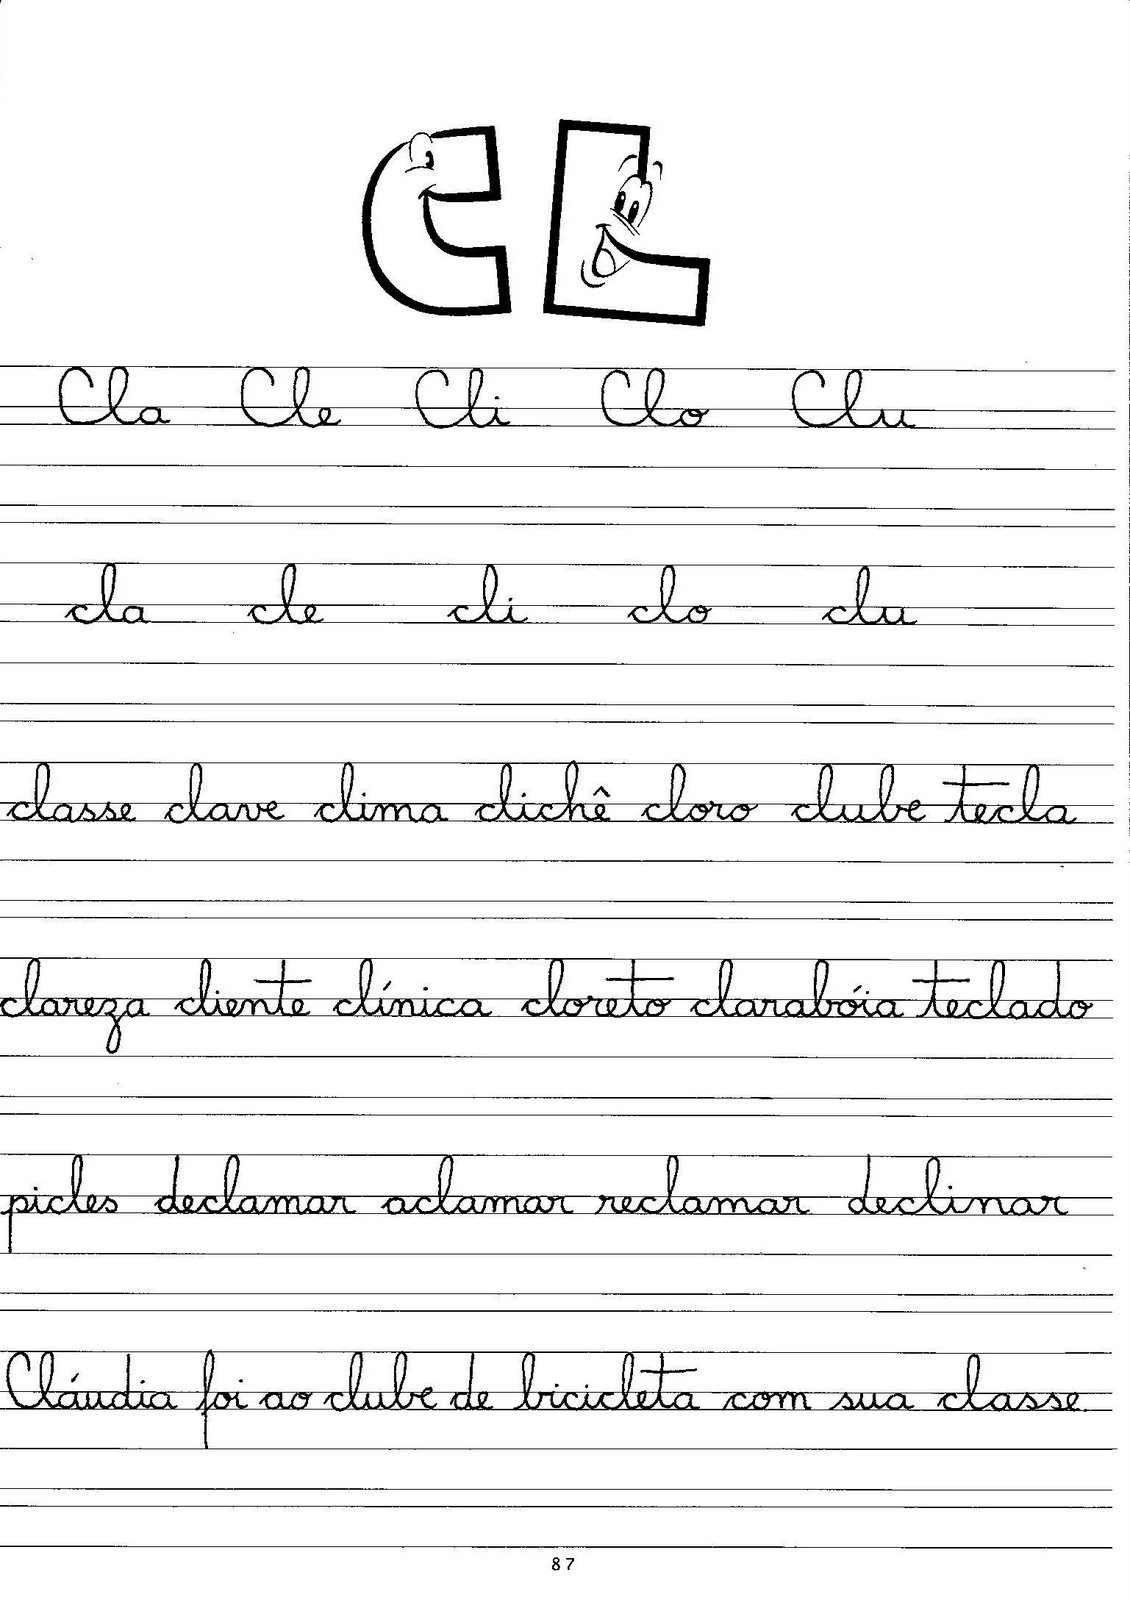 CL
Cla Cle Cli Clo Clu
cla cle cli clo clu
classe clave clima clichê cloro clube tecla
clareza cliente clínica cloreto clarabóia teclado
picles declamar aclamar reclamar declinar
Cláudia foi ao clube de bicicleta com sua classe.
87